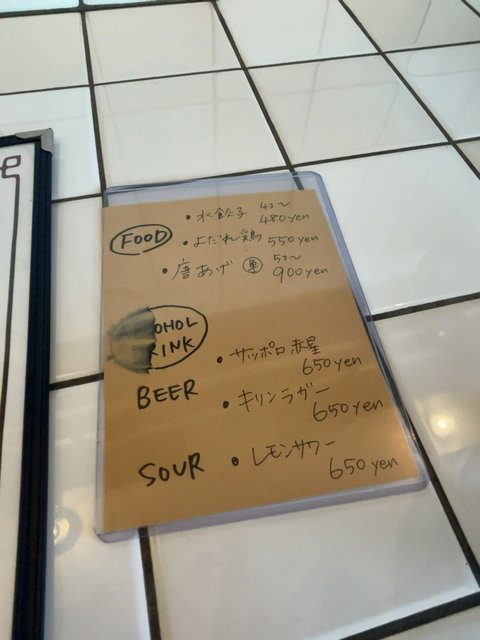 FOOD
・水餃子 4コ〜 480yen
・よだれ鶏 550yen
・唐あげ 5コ〜 900yen
OHOL
RINK
BEER
・サッポロ赤星 650yen
・キリンラガー 650yen
SOUR
・レモンサワー 650yen